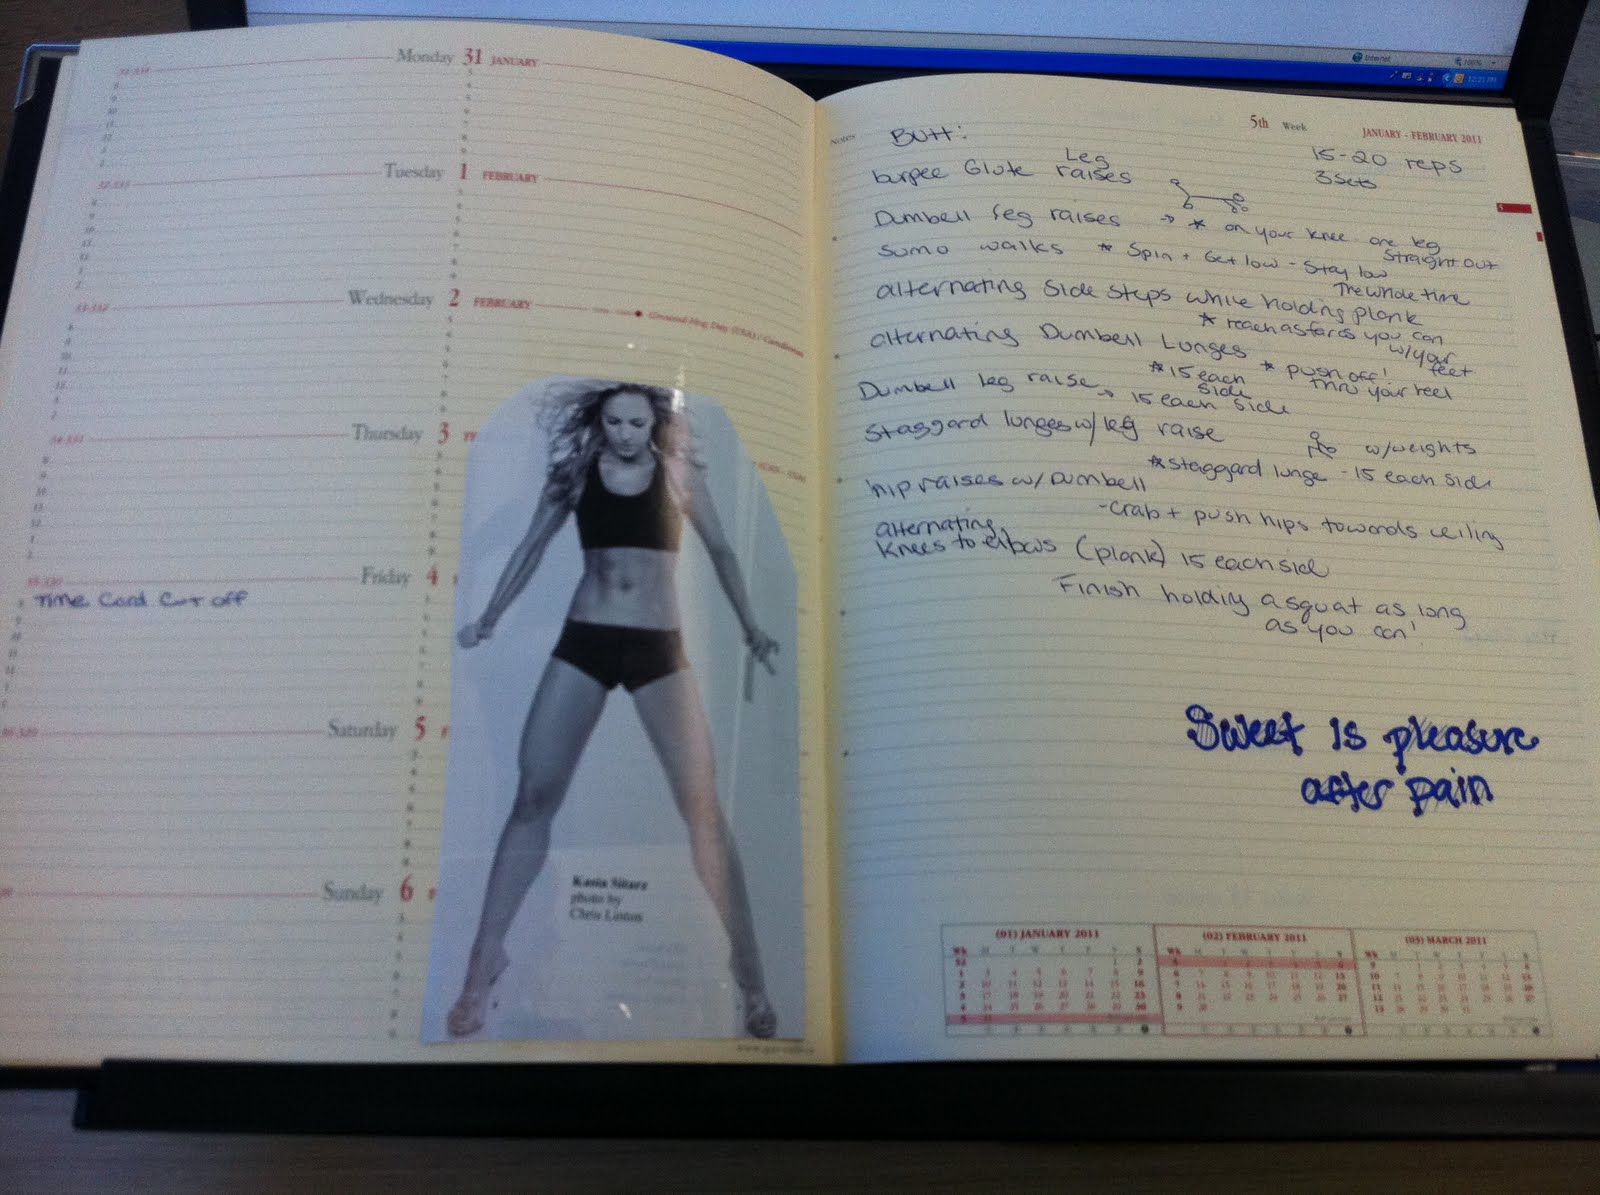 Internet
100%
12:21 PM
Monday 31 JANUARY
Tuesday 1 FEBRUARY
Wednesday 2 FEBRUARY
Ground-Hog Day (USA) / Candlemas
Thursday 3
Friday 4
Time Card Cut off
Saturday 5
Sunday 6
Kasia Sitarz
photo by
Chris Linton
Notes
5th Week
JANUARY - FEBRUARY 2011
5
Butt:
15-20 reps
3 sets
burpee Glute Leg raises
Dumbell leg raises → * on your knee one leg
straight out
Sumo walks * Spin + Get low - Stay low
The whole time
alternating Side Steps while holding plank
* reach as far as you can
w/your
feet
alternating Dumbell Lunges
* 15 each
side
* push off!
thru your heel
Dumbell leg raise → 15 each side
Staggard lunges w/ leg raise
w/weights
* staggard lunge - 15 each side
hip raises w/ Dumbell
- Crab + push hips towards ceiling
alternating
Knees to elbows (plank) 15 each side
Finish holding a squat as long
as you can!
Sweet is pleasure
after pain
(01) JANUARY 2011
(02) FEBRUARY 2011
(03) MARCH 2011